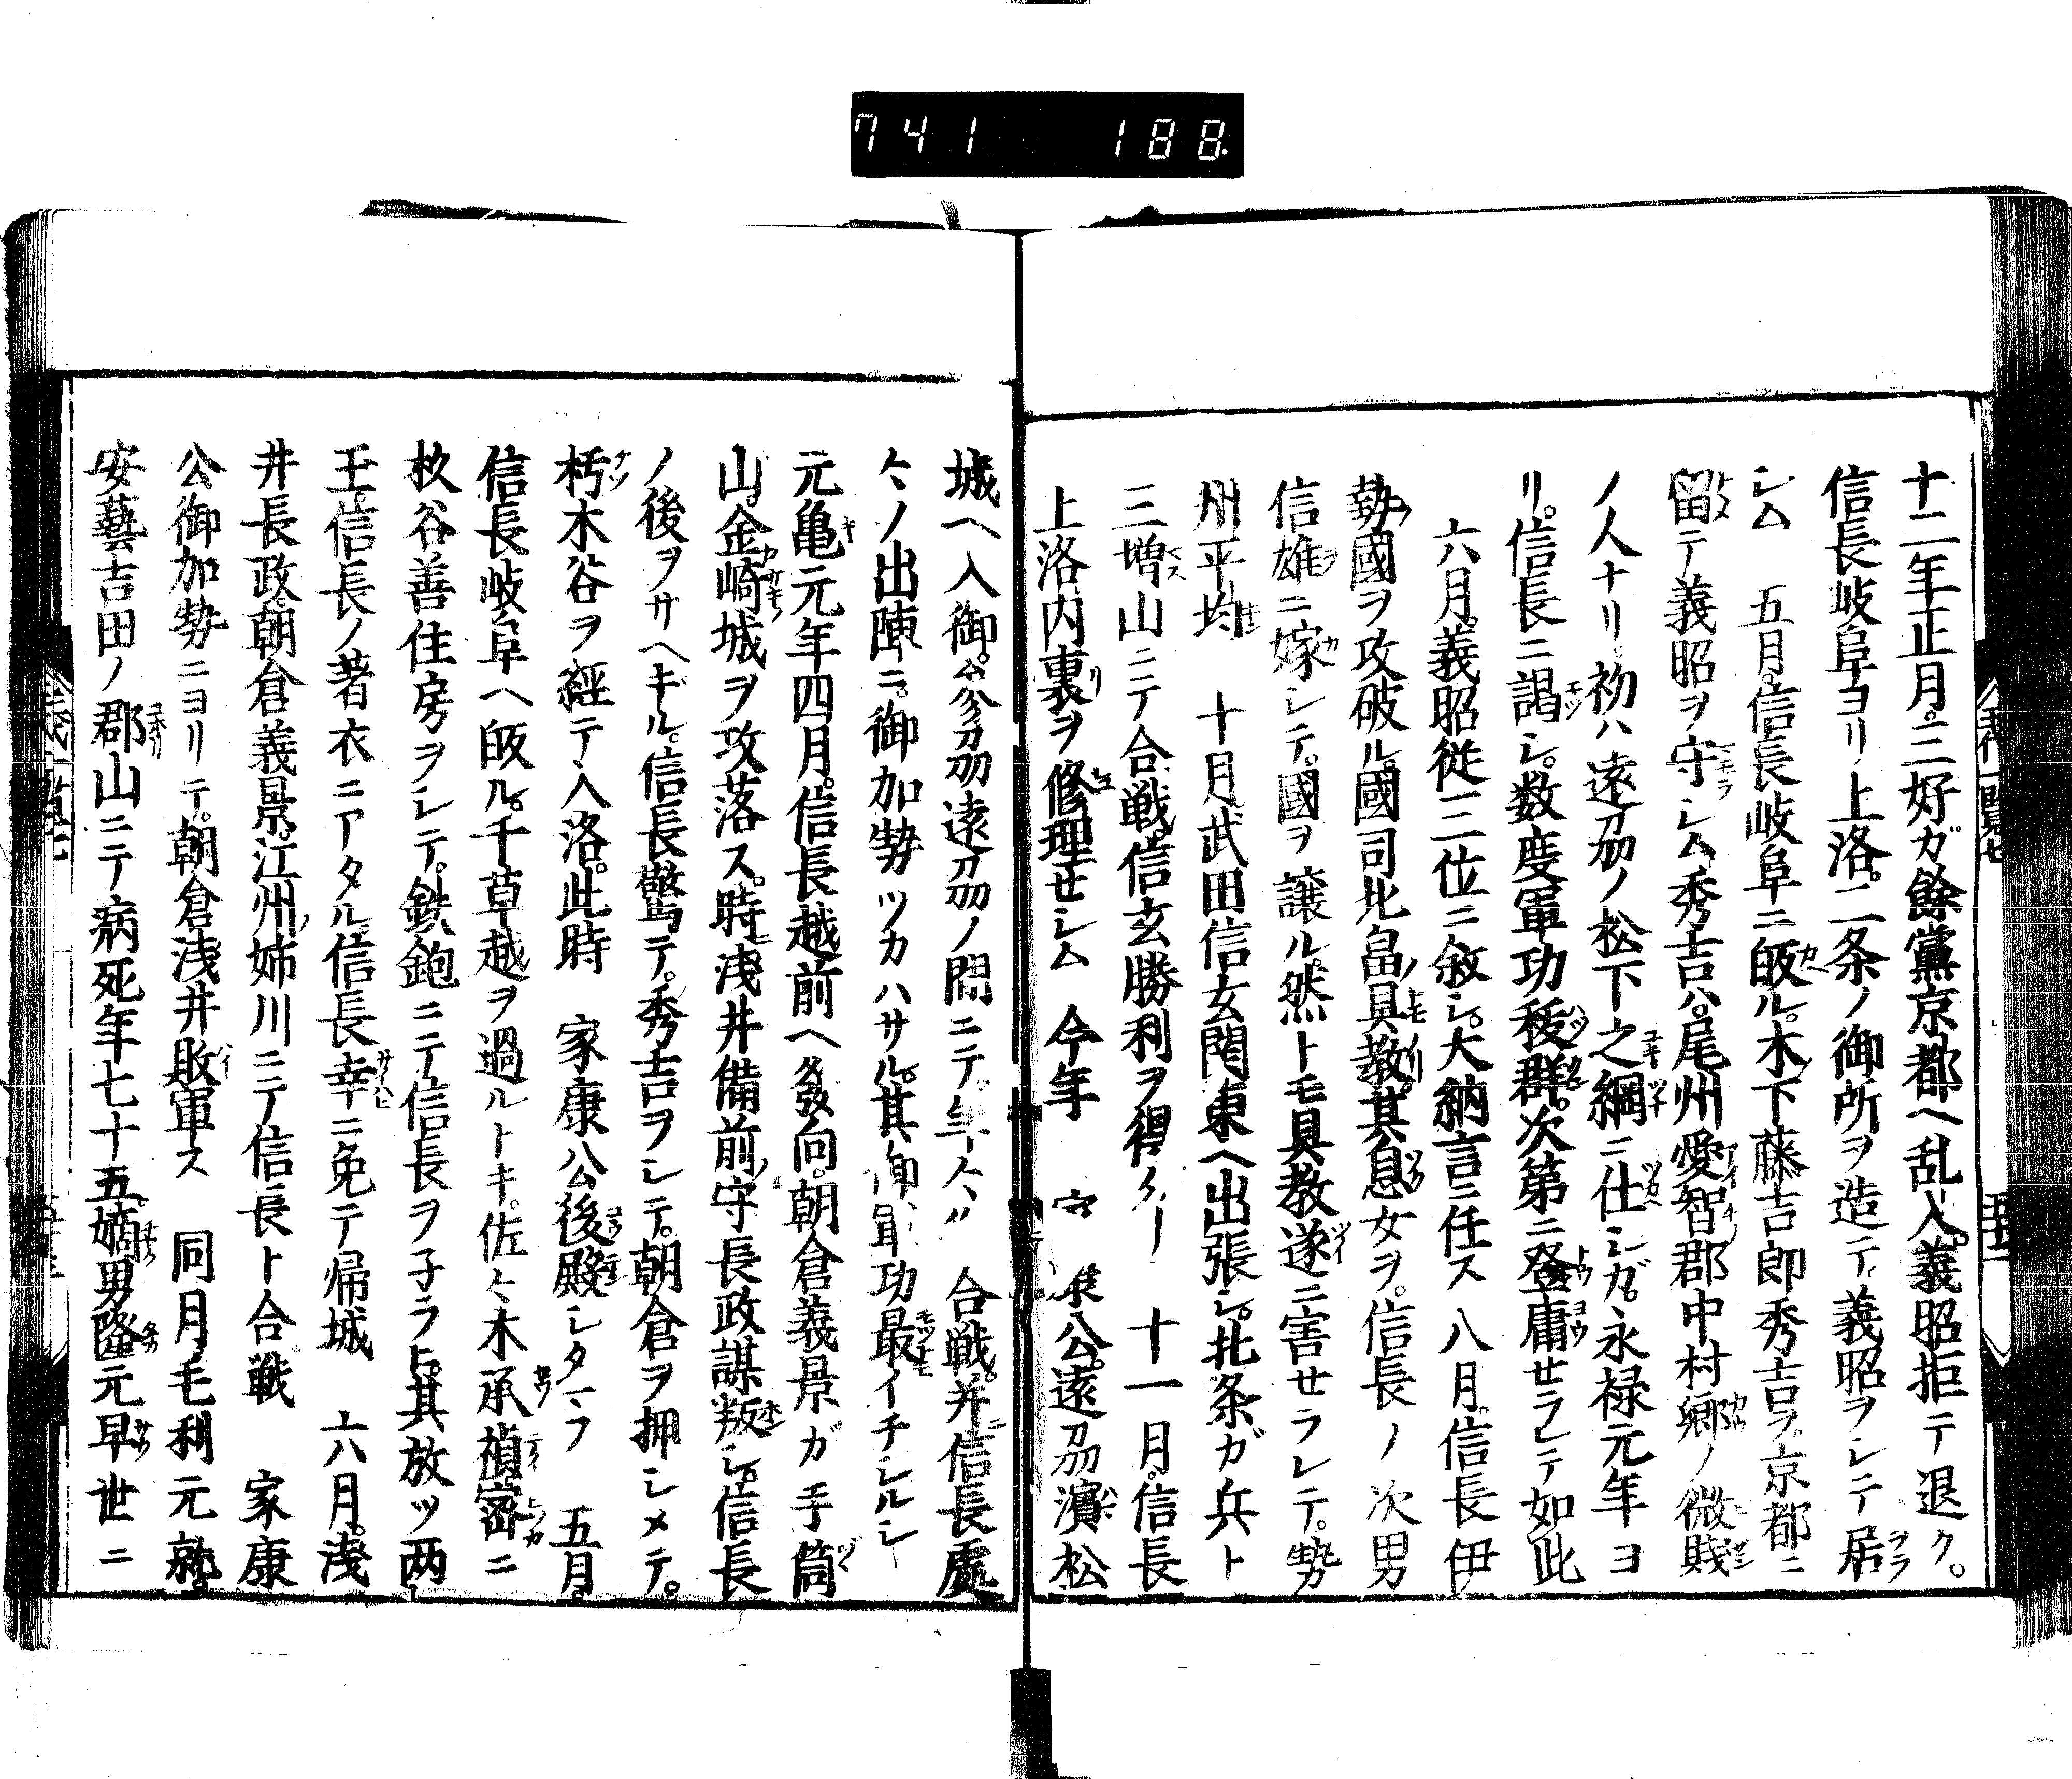 741 188
十二年正月。三好ガ餘黨京都ヘ乱入。義昭拒テ退ク。
信長岐阜ヨリ上洛。二条ノ御所ヲ造テ。義昭ヲシテ居
シム 五月。信長岐阜ニ皈ル。木下藤吉郎秀吉ヲ。京都ニ
留テ義昭ヲ守シム。秀吉ハ。尾州愛智郡中村郷ノ微賎
ノ人ナリ。初ハ遠刕ノ松下之綱ニ仕シガ。永禄元年ヨ
リ。信長ニ謁シ。数度軍功秡群。次第ニ登庸セラレテ如此
六月。義昭従三位ニ叙シ。大納言ニ任ス 八月。信長伊
勢國ヲ攻破ル。國司北畠具教。其息女ヲ。信長ノ次男
信雄ニ嫁シテ。國ヲ譲ル。然トモ具教遂ニ害セラレテ。勢
州平均 十月武田信玄関東ヘ出張シ。北条ガ兵ト
三増山ニテ合戦。信玄勝利ヲ得タリ 十一月。信長
上洛内裏ヲ修理セシム 今年 家康公。遠刕濱松
城ヘ入御。参刕遠刕ノ間ニテ。年々 合戦。并ニ信長處
々ノ出陣ニ。御加勢ツカハサル。其御軍功最イチシルシ
元亀元年四月。信長越前ヘ發向。朝倉義景ガ手筒
山。金崎城ヲ攻落ス。時ニ浅井備前ノ守長政謀叛シ。信長
ノ後ヲサヘギル。信長驚テ。秀吉ヲシテ。朝倉ヲ押シメテ。
朽木谷ヲ經テ入洛。此時 家康公後殿シタマフ 五月。
信長岐阜ヘ皈ル。千草越ヲ過ルトキ。佐々木承禎。密ニ
杦谷善住房ヲシテ。鉄鉋ニテ信長ヲ子ラヒ。其放ツ两
玉信長ノ著衣ニアタル。信長幸ニ免テ帰城 六月。浅
井長政。朝倉義景。江州姉川ニテ信長ト合戦 家康
公御加勢ニヨリテ。朝倉浅井敗軍ス 同月毛利元就。
安藝吉田ノ郡山ニテ病死年七十五。嫡男隆元早世ニ